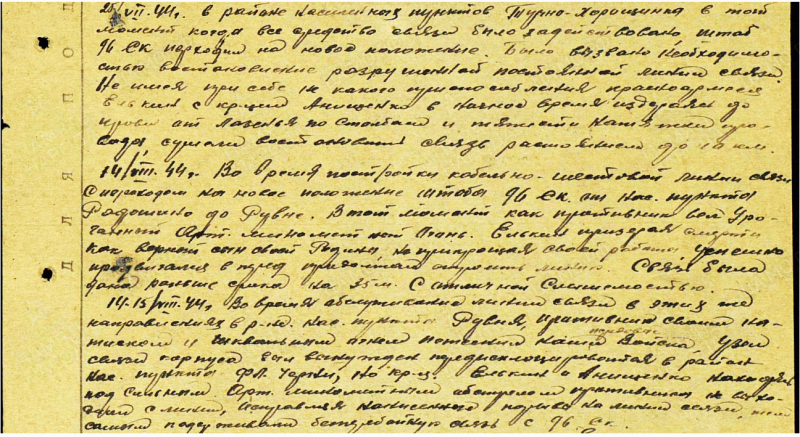 25/VII.44г. в районе населенных пунктов Турно-Хорощинка в тот
момент когда все средства связи было задействовано штаб
96 Ск переходил на новое положение. Было вызвано необходимо-
стью востоновление разрушенной постоянной линии связи.
Не имея при себе не какого приспособления красноармеец
Елькин с кр-цем Анищенко в ночное время издирая до
крови от лазенья по столбам и тяжести натяжки про-
вода сумели востоновить связь растоянием до 10 км.
14/VIII.44г. Во время постройки кабельно-шестовой линии связи
с переходом на новое положение штаба 96 Ск. от нас. пункта
Радошино до Рувне. В тот момент как противник вел Ура-
ганный Арт. минометный огонь. Елькин призерая смерть
как верный сын своей Родины не прикрощая своей работы успешно
продвигался в перед строить линию. Связь была
дана раньше срока на 35м. С отличной слышемостью.
14-15/VIII-44г. Во время обслуживание линии связи в этих же
направлениях в р-не. нас. пункта Рувня, противник своим на-
тиском и шквальным огнем потеснил наши войска узел
связи корпуса был вынужден передислоцироватся в район
нас. пункта Фл. Черни, но кр-цы Елькин и Анищенко находясь
под сильным Арт. минометным обстрелом противника не ухо-
дили с линии, исправляя нанесенные порывы на линии связи, тем
самым подерживали бесперебойную связь с 96. Ск.
Д Л Я П О Д